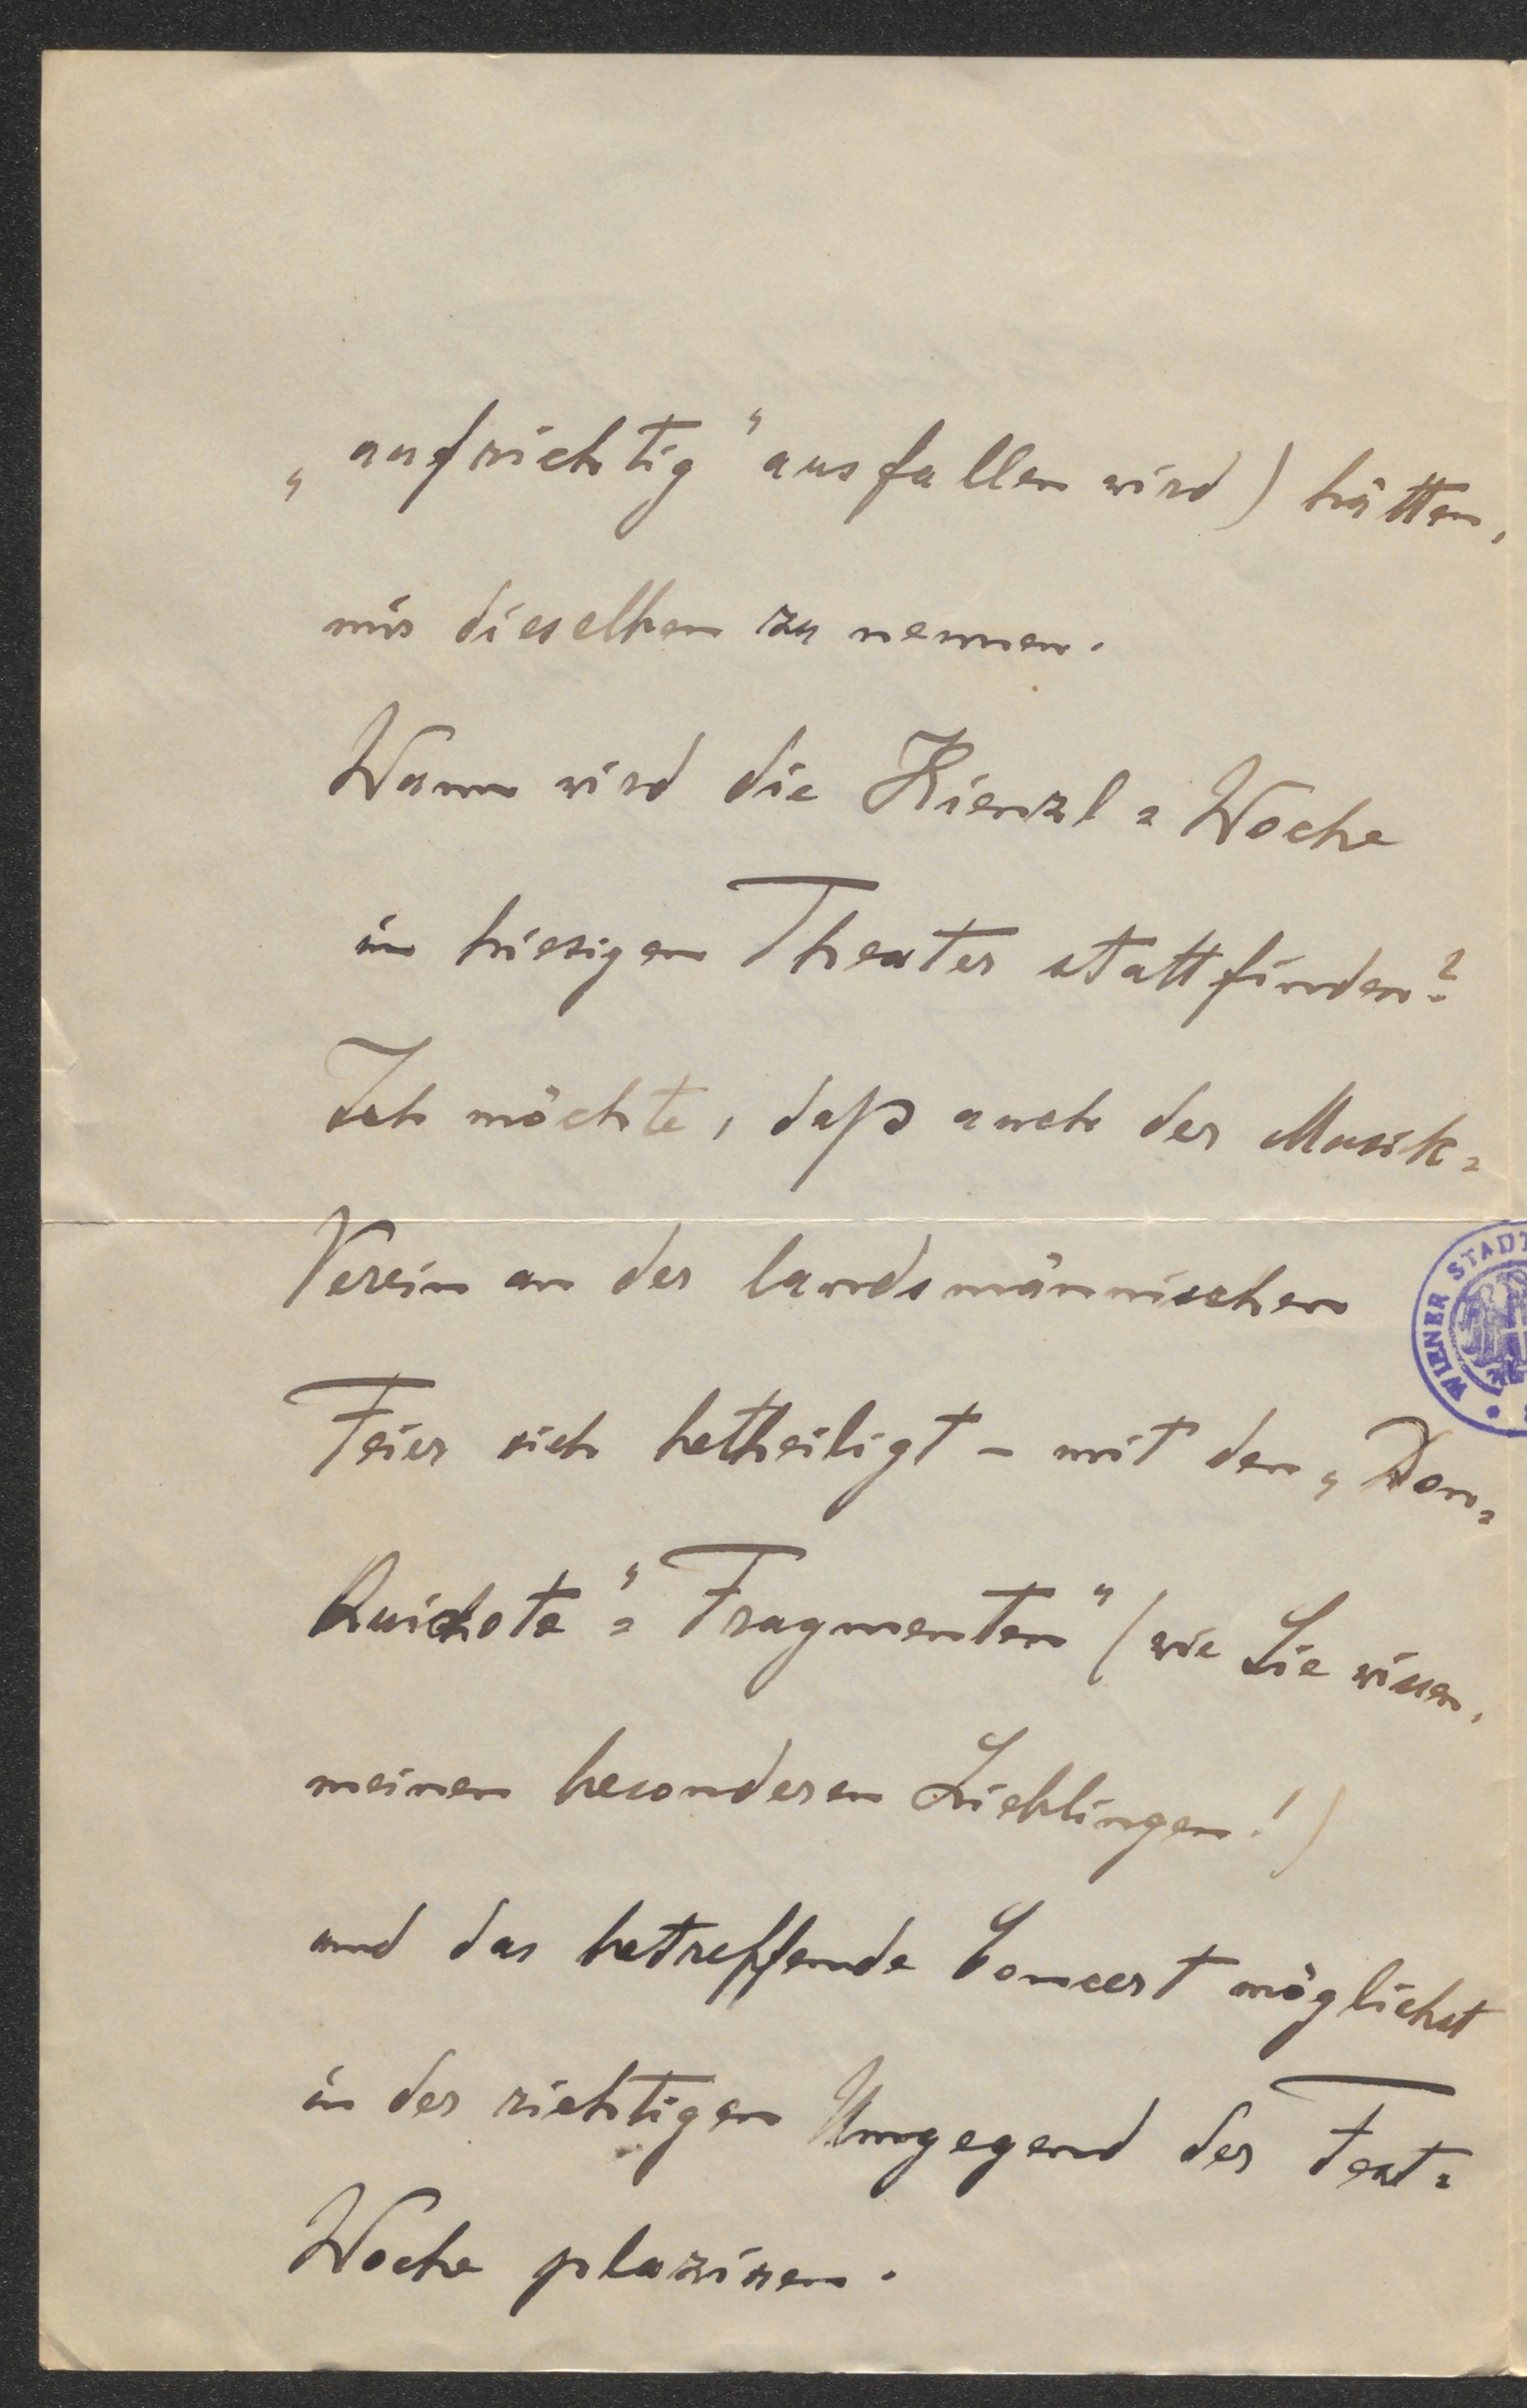 „aufrichtig“ ausfallen wird) hätten,
mir dieselben zu nennen.
Wann wird die Kienzl=Woche
im hiesigen Theater stattfinden?
Ich möchte, daß auch der Musik=
Verein an der landsmännischen
WIENER STADT
Feier sich betheiligt – mit den „Don=
Quichote“=Fragmenten“ (wie Sie wissen,
meinen besonderen Lieblingen!)
und das betreffende Concert möglichst
in der richtigen Umgegend der Fest=
Woche plaziren.